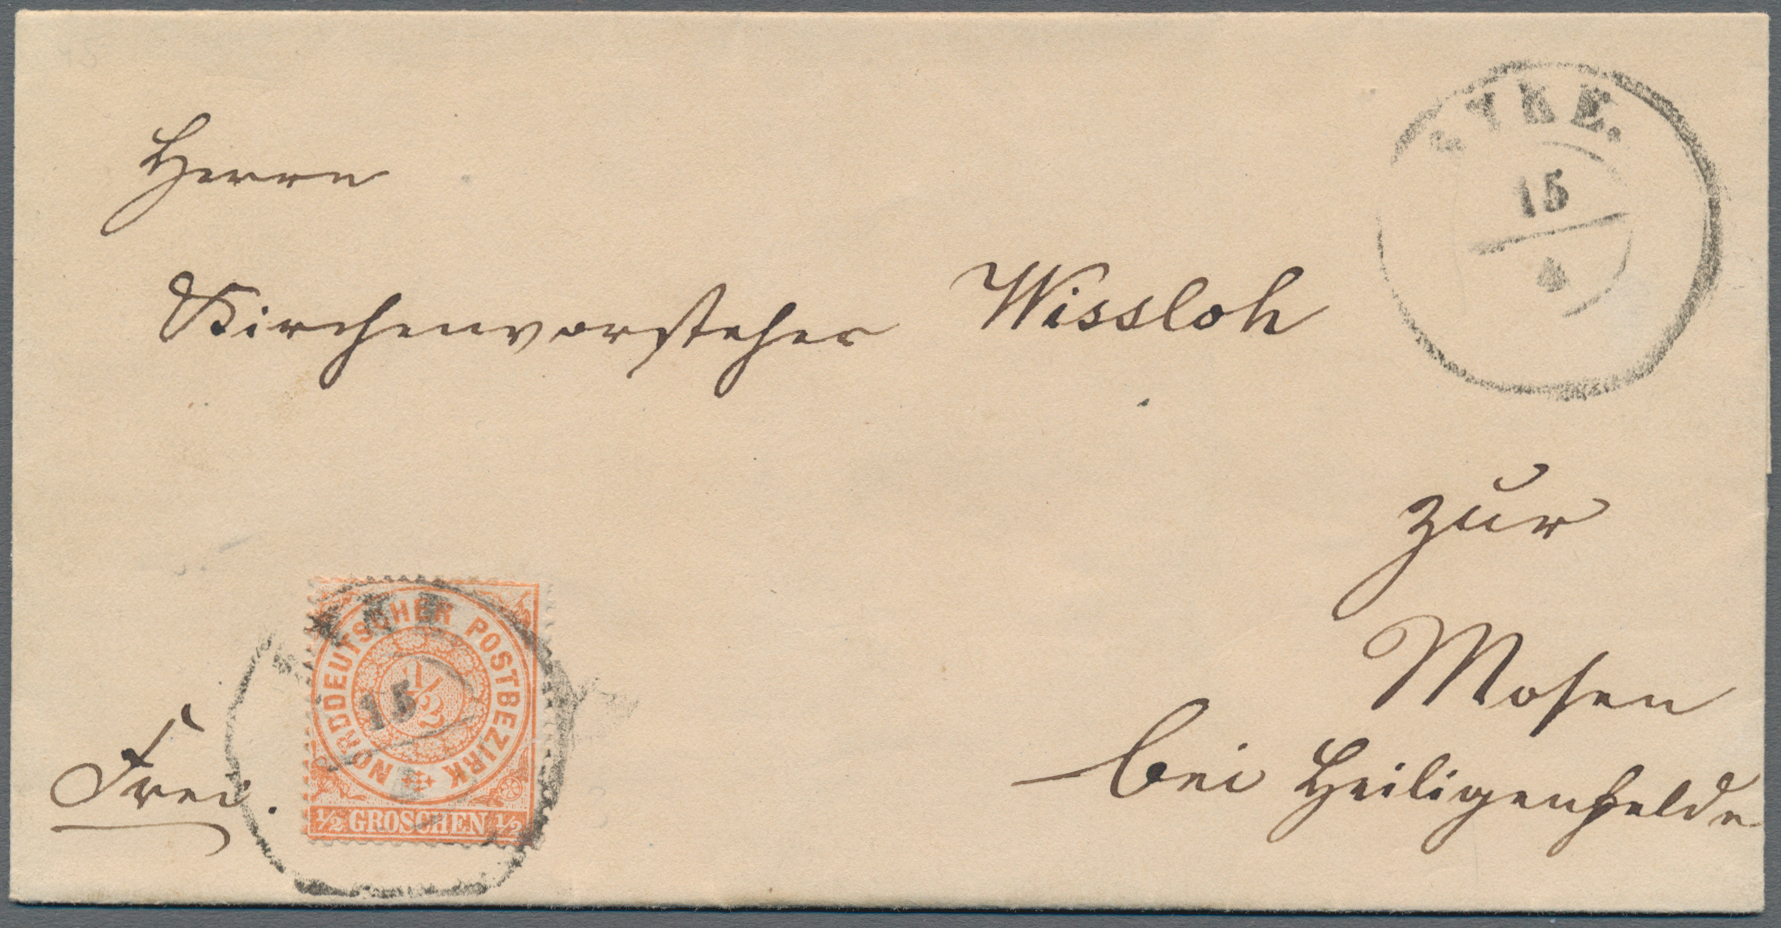 SYKE.
15
4
Herrn
Kirchenvorsteher Wissloh
zur
Mosen
bei Heiligenfelde
Frei.
SYKE
15
NORDDEUTSCHER POSTBEZIRK
1/2
1/2 GROSCHEN 1/2